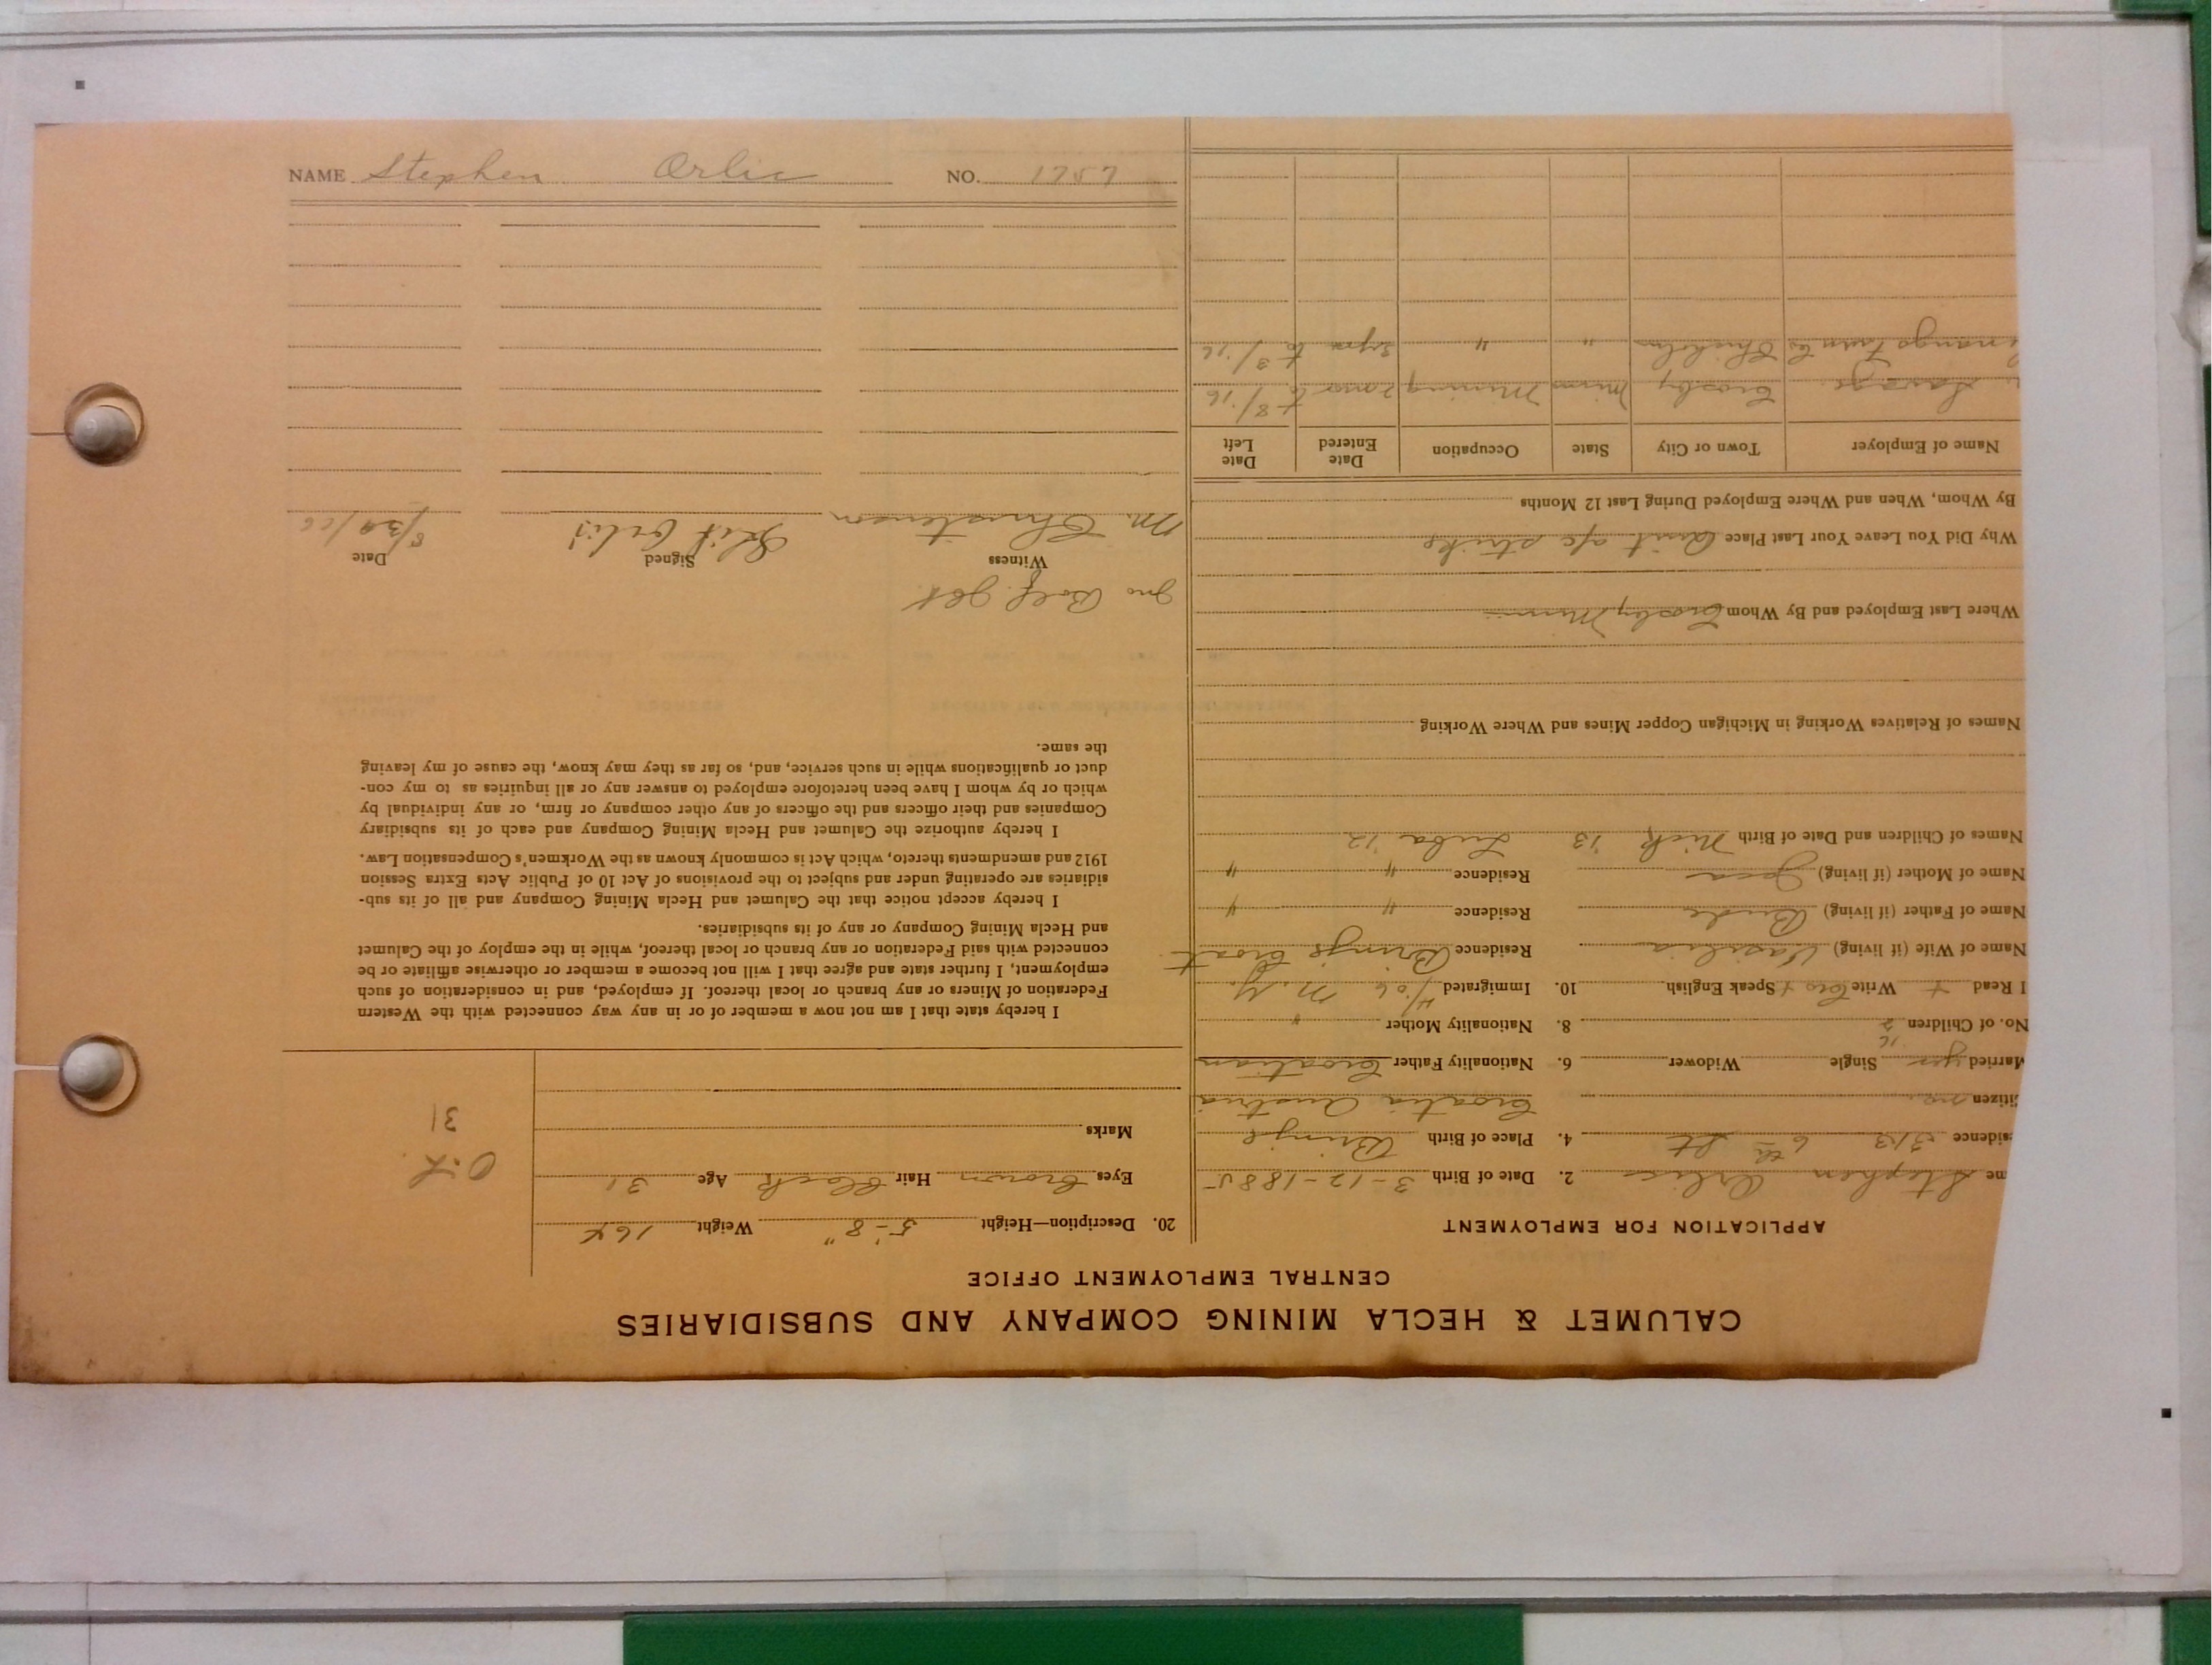 NAME Stephen Orlic NO. 1757
CALUMET & HECLA MINING COMPANY AND SUBSIDIARIES
CENTRAL EMPLOYMENT OFFICE
APPLICATION FOR EMPLOYMENT
me Stephen Orlic 2. Date of Birth 3-12-1885
sidence 313 6th St 4. Place of Birth Brinje
itizen no. Croatia Austria
Married yes Single Widower 6. Nationality Father Croatian
No. of Children 2 8. Nationality Mother "
I Read + Write Cro + Speak English 10. Immigrated 4/06 N.Y.
Name of Wife (if living) Vasilia Residence Brinje Croat
Name of Father (if living) Residence " "
Name of Mother (if living) Residence " "
Names of Children and Date of Birth Nick '13 Luba '12
Names of Relatives Working in Michigan Copper Mines and Where Working
Where Last Employed and By Whom Crosby Minn
Why Did You Leave Your Last Place Quit a/c strike
By Whom, When and Where Employed During Last 12 Months
Name of Employer Town or City State Occupation Date Entered Date Left
Savage Crosby Minn Mining 2 mos to 8/16
Chisholm " " 2 yrs to 3/16
20. Description—Height 5'-8" Weight 164
Eyes Brown Hair Black Age 31
Marks
O.K.
31
I hereby state that I am not now a member of or in any way connected with the Western
Federation of Miners or any branch or local thereof. If employed, and in consideration of such
employment, I further state and agree that I will not become a member or otherwise affiliate or be
connected with said Federation or any branch or local thereof, while in the employ of the Calumet
and Hecla Mining Company or any of its subsidiaries.
I hereby accept notice that the Calumet and Hecla Mining Company and all of its sub-
sidiaries are operating under and subject to the provisions of Act 10 of Public Acts Extra Session
1912 and amendments thereto, which Act is commonly known as the Workmen's Compensation Law.
I hereby authorize the Calumet and Hecla Mining Company and each of its subsidiary
Companies and their officers and the officers of any other company or firm, or any individual by
which or by whom I have been heretofore employed to answer any or all inquiries as to my con-
duct or qualifications while in such service, and, so far as they may know, the cause of my leaving
the same.
Witness Signed Date
M. Christensen Stif Orlić 8/30/16